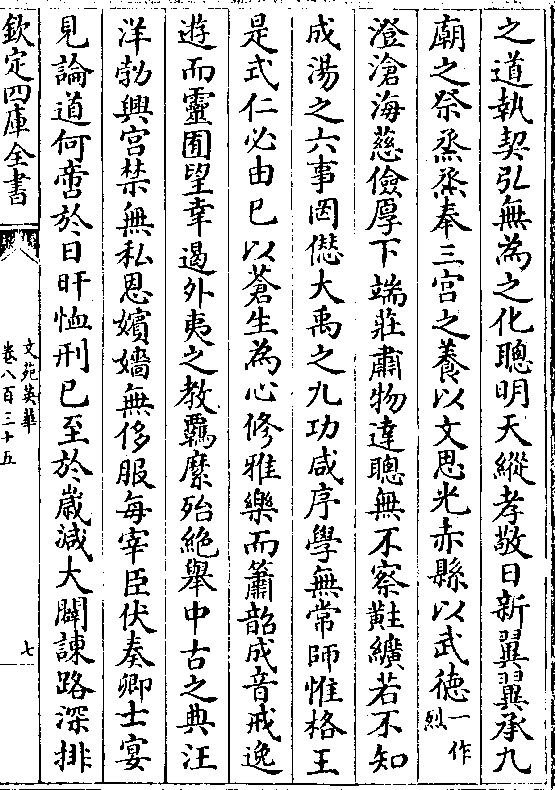 之道執契弘無為之化聰明天縱孝敬日新翼翼承九
廟之祭烝烝奉三宫之養以文思光赤縣以武徳一作烈
澄滄海慈儉厚下端莊肅物達聰無不察黈纊若不知
成湯之六事罔愆大禹之九功咸序學無常師惟格王
是式仁必由已以蒼生為心修雅樂而簫韶成音戒逸
遊而靈囿望幸遏外夷之教覊縻殆絶舉中古之典汪
洋勃興宫禁無私恩嬪嬙無侈服毎宰臣伏奏卿士宴
見論道何啻於日旰恤刑已至於歳減大闢諫路深排
欽定四庫全書
文苑英華
卷八百三十五
七